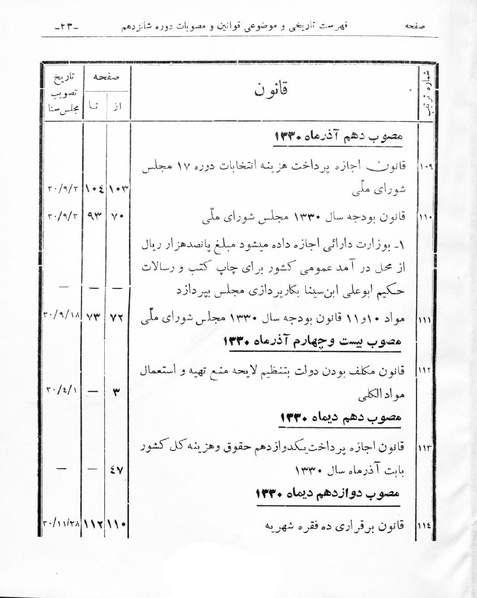 صفحه فهرست تاریخی و موضوعی قوانین و مصوبات دوره شانزدهم -۲۳-
شماره ترتیب قانون صفحه تاریخ تصویب مجلس سنا
از تا
مصوب دهم آذرماه ۱۳۳۰
۱۰۹ قانون اجازه پرداخت هزینه انتخابات دوره ۱۷ مجلس
شورای ملّی ۱۰۳ ۱۰٤ ۳۰/۹/۲
۱۱۰ قانون بودجه سال ۱۳۳۰ مجلس شورای ملّی ۷۰ ۹۳ ۳۰/۹/۲
۱ـ بوزارت دارائی اجازه داده میشود مبلغ پانصدهزار ریال
از محل در آمد عمومی کشور برای چاپ کتب و رسالات
حکیم ابوعلی ابن‌سینا بکارپردازی مجلس بپردازد — —
۱۱۱ مواد ۱۰ و ۱۱ قانون بودجه سال ۱۳۳۰ مجلس شورای ملّی ۷۲ ۷۳ ۳۰/۹/۱۸
مصوب بیست و چهارم آذرماه ۱۳۳۰
۱۱۲ قانون مکلف بودن دولت بتنظیم لایحه منع تهیه و استعمال
موادالکلی ۳ — ۳۰/٤/۱
مصوب دهم دیماه ۱۳۳۰
۱۱۳ قانون اجازه پرداخت یکدوازدهم حقوق وهزینه کل کشور
بابت آذرماه سال ۱۳۳۰ ٤۷ — —
مصوب دوازدهم دیماه ۱۳۳۰
۱۱٤ قانون برقراری ده فقره شهریه ۱۱۰ ۱۱۲ ۳۰/۱۱/۲۸